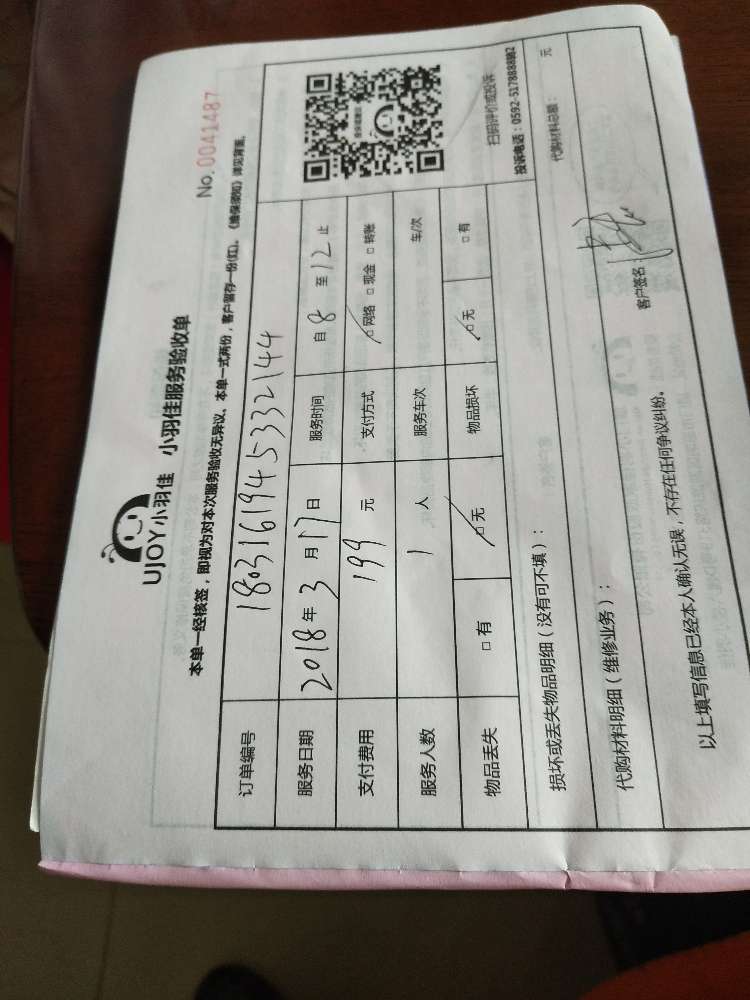 UJOY小羽佳 小羽佳服务验收单
No. 0041487
本单一经核签，即视为对本次服务验收无异议。本单一式两份，客户留存一份(红)。《维保须知》详见背面。
订单编号 1803161945332144
服务日期 2018年3月17日 服务时间 自8至12止
支付费用 199元 支付方式 □网络 □现金 □转账
服务人数 1人 服务车次 车/次
物品丢失 □有 □无 物品损坏 □无 □有
扫码评价或投诉
投诉电话：0592-5178888转2
损坏或丢失物品明细（没有可不填）：
代购材料明细（维修业务）：
代购材料总额： 元
以上填写信息已经本人确认无误，不存在任何争议纠纷。
客户签名：